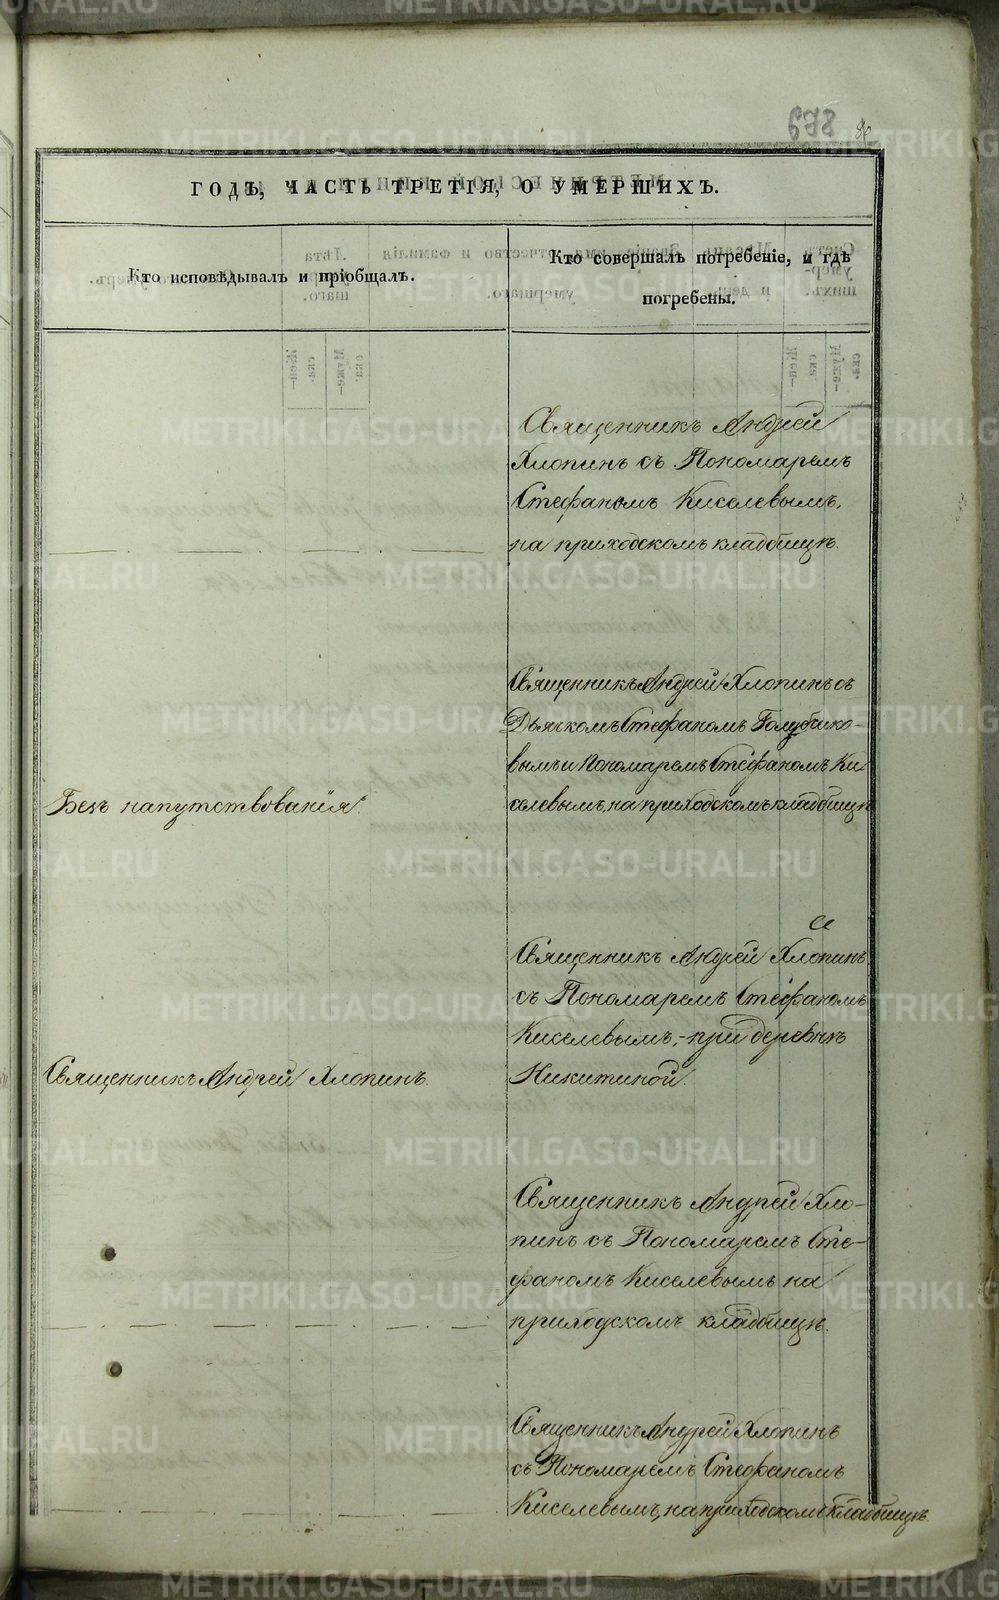 678
ГОДЪ, ЧАСТЬ ТРЕТІЯ, О УМЕРШИХЪ.
Кто исповѣдывалъ и пріобщалъ.
Кто совершалъ погребеніе, и гдѣ
погребены.
Священникъ Андрей
Хлопинъ съ Пономаремъ
Стефаномъ Киселевымъ,
на приходскомъ кладбищѣ.
Священникъ Андрей Хлопинъ съ
Дьячкомъ Стефаномъ Голубчико-
вымъ и Пономаремъ Стефаномъ Ки
селевымъ, на приходскомъ кладбищѣ
Безъ напутствованія.
Священникъ Андрей Хлопинъ
съ Пономаремъ Стефаномъ
Киселевымъ, - при деревнѣ
Никитиной.
Священникъ Андрей Хлопинъ.
Священникъ Андрей Хло-
пинъ съ Пономаремъ Сте-
фаномъ Киселевымъ на
приходскомъ кладбищѣ.
Священникъ Андрей Хлопинъ
съ Пономаремъ Стефаномъ
Киселевымъ, на приходскомъ кладбищѣ.
METRIKI.GASO-URAL.RU